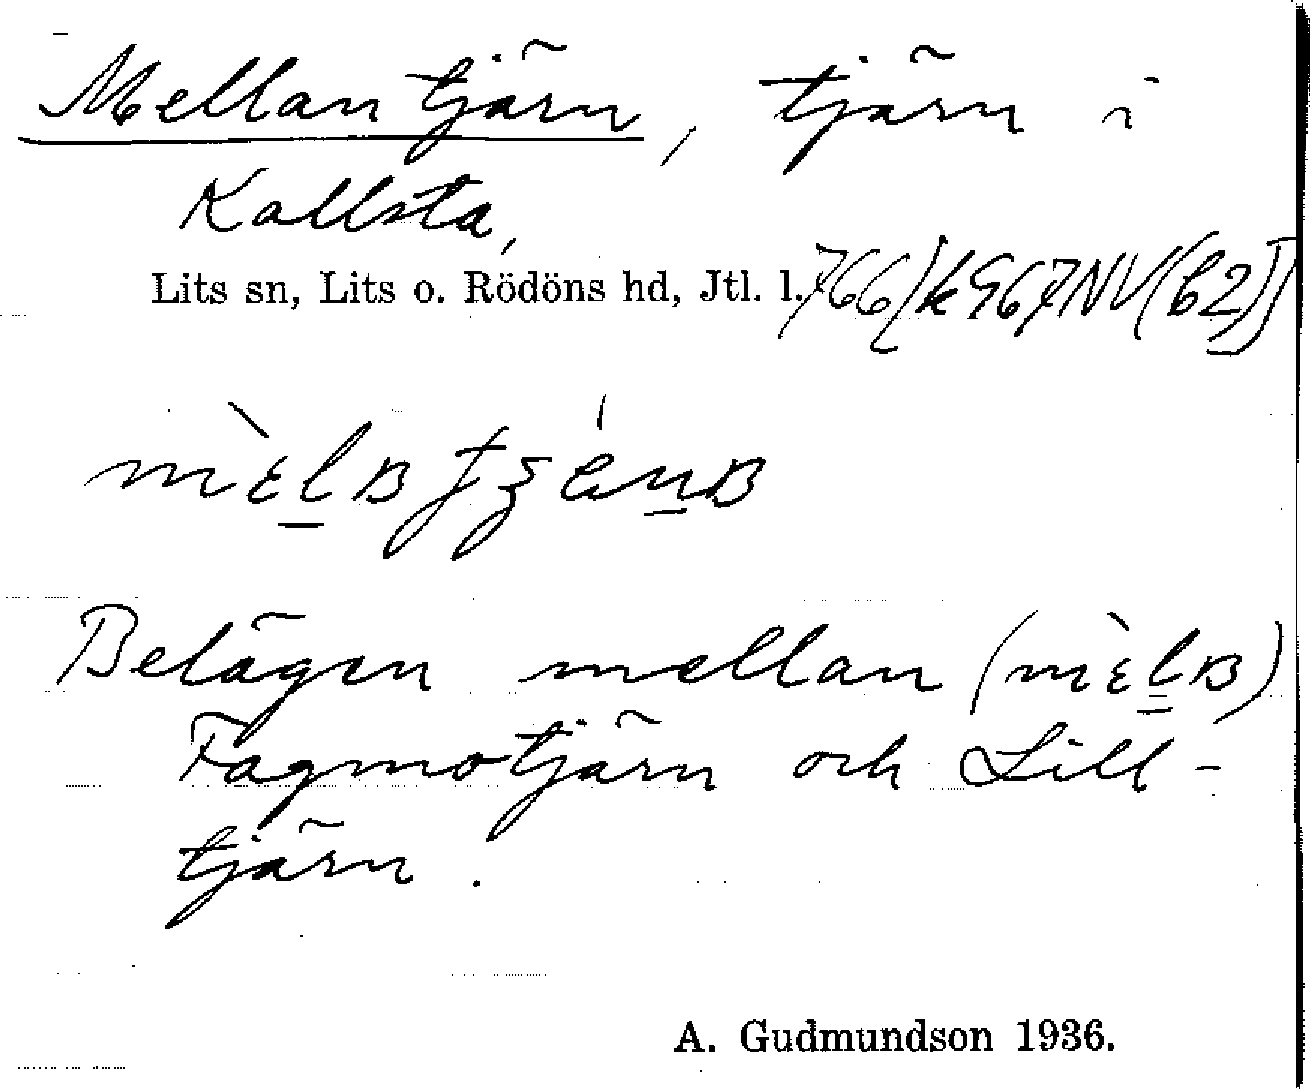 Mellantjärn, tjärn i
Kallsta,
Lits sn, Lits o. Rödöns hd, Jtl. l.
Belägen mellan (mὲlʙ)
Fagmotjärn och Lill-
tjärn.
A. Gudmundson 1936.